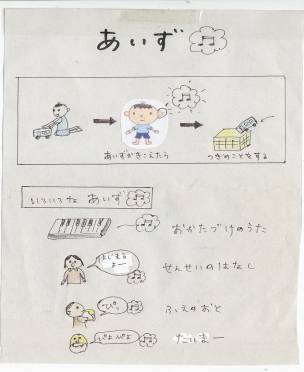 あいず
あいずがきこえたら
つぎのことをする
いろいろな あいず
おかたづけのうた
はじまるよー
せんせいのはなし
ぴっ
ふえのおと
ぴよぴよ
たいまー